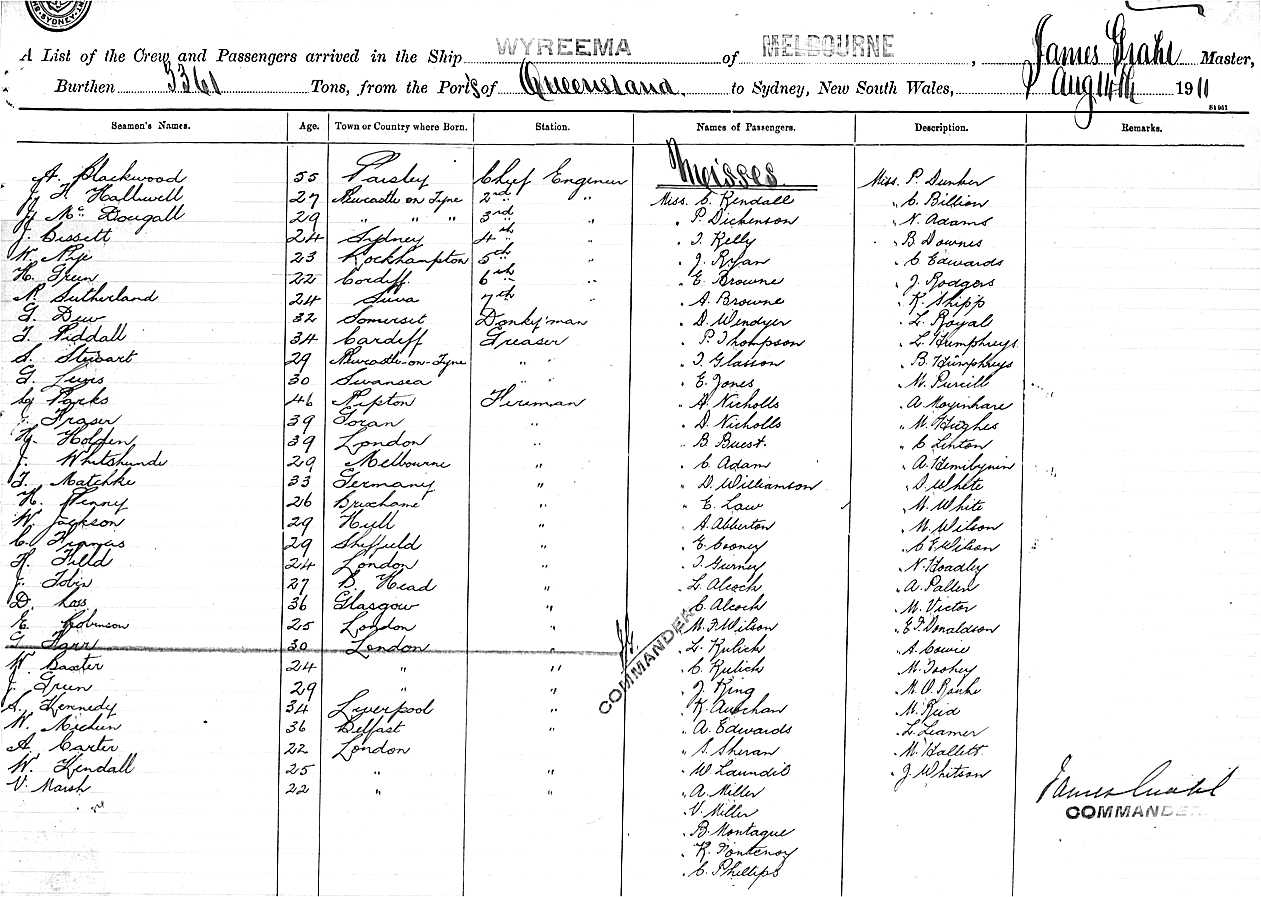 SYDNEY
A List of the Crew and Passengers arrived in the Ship WYREEMA of MELBOURNE, James Grahl Master,
Burthen 3361 Tons, from the Port s of Queensland to Sydney, New South Wales, Aug 14th 1911
Seamen's Names. Age. Town or Country where Born. Station. Names of Passengers. Description. Remarks.
Misses.
A. Blackwood 55 Paisley Chief Engineer Miss. P. Dunker
J. F. Halliwell 27 Newcastle on Tyne 2nd " Miss. C. Kendall " C. Billion
J. Mc. Dougall 29 " " " 3rd " " P. Dickenson " N. Adams
J. Bissett 24 Sydney 4th " " I. Kelly " B. Downes
W. Pip 23 Rockhampton 5th " J. Ryan " C. Edwards
H. Green 22 Cardiff 6th " " E. Browne " J. Rodgers
N. Sutherland 24 Suva 7th " A. Browne " K. Shipp
G. Dew 32 Somerset Donky'man " D. Wendyer " L. Royal
T. Piddall 34 Cardiff Greaser " P. Thompson " L. Humphreys
S. Stewart 29 Newcastle-on-Tyne " " I. Glasson " B. Humphreys
G. 30 Swansea " " E. Jones " M. Purcill
Parks 46 Ripton Fireman " A. Nicholls " A. Moyinhare
J. Fraser 39 " D. Nicholls " M. Hughes
H. Holden 39 London " " B. Buest " C. Linton
J. Whitshunde 29 Melbourne " " C. Adam " A.
F. Matchke 33 Germany " " D. Williamson " D. White
H. Penny 26 Brixhame " " E. Law " M. White
W. Jackson 29 Hull " " A. Abberton " M. Wilson
C. Francis 29 Sheffield " " E. Cooney " C. E. Wilson
H. Field 24 London " " I. Gurney " N. Hoadley
J. Tobin 27 B. Head " " L. Alcock " A. Pallen
D. 36 Glasgow " " C. Alcock " M. Victor
E. Robinson 25 London " " M. F. Wilson " E. F. Donaldson
G. Farr 30 London " " L. Kulich " A. Cowie
COMMANDER
W. Baxter 24 " " " C. Kulich " M. Tookey
J. Green 29 " " " J. King " M. O. Rouke
S. Kennedy 34 Liverpool " " K. " M. Reid
W. 36 Belfast " " A. Edwards " L. Leamer
A. Carter 22 London " S. Sheran " M. Hallett
W. Kendall 25 " " " W. Laundil " J. Whitson
V. Marsh 22 " " " A. Miller
James Grahl
COMMANDER
" V. Miller
" B. Montague
" K. Fontenoy
" C. Phillips